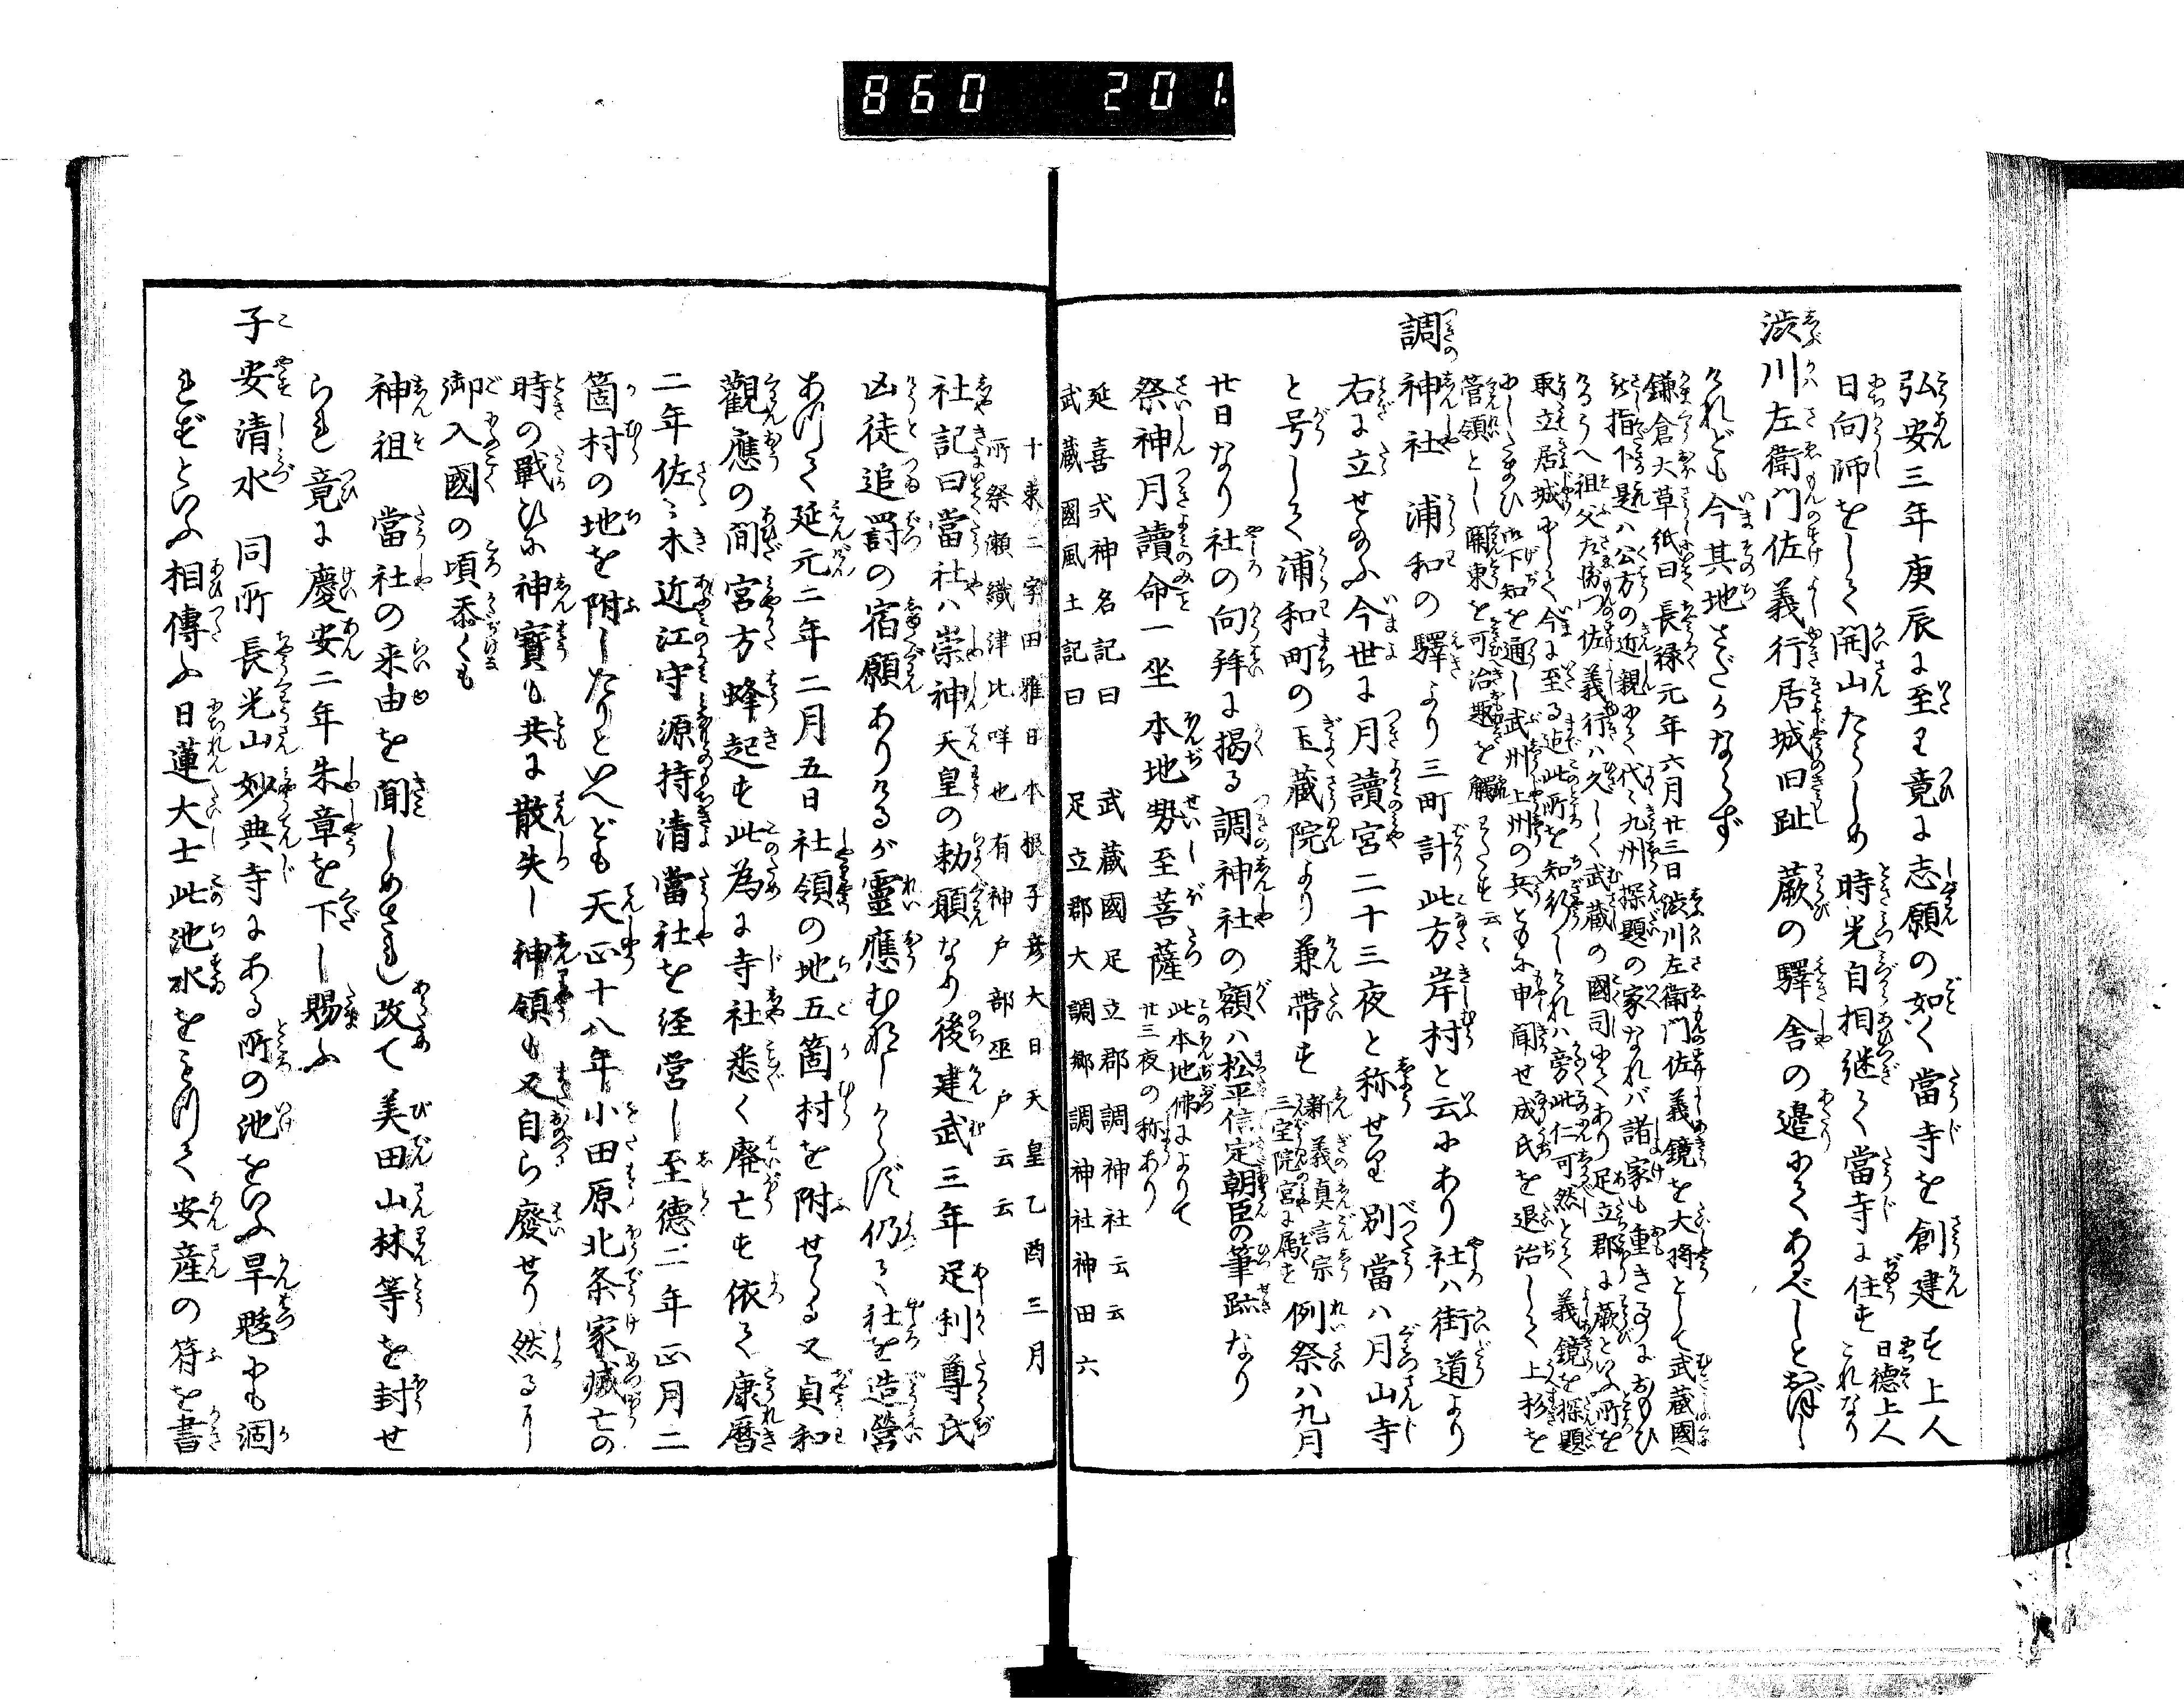 860 201.
弘安三年庚辰に至り竟に志願の如く當寺を創建す上人
日向師をして開山たらしめ時光自相継て當寺に住す 日徳上人
これなり
渋川左衛門佐義行居城旧趾 蕨の驛舎の邉にてあるべしとおぼし
けれども今其地さだかならず
鎌倉大草紙曰長禄元年六月廿三日渋川左衛門佐義鏡を大将として武蔵國へ
指下是ハ公方の近親にて代々九州探題の家なれバ諸家も重き
けるうへ祖父左衛門佐義行ハ久しく武蔵の國司にてあり足立郡に蕨といふ所を
取立居城にして今に至る迄此所を知行しけれハ旁此仁可然とて義鏡を探題
にしたまひ御下知を通し武州上州の兵ともに申聞せ成氏を退治して上杉を
管領とし関東を可治趣を觸らる云々
調神社 浦和の驛より三町計此方岸村と云にあり社ハ街道より
右に立せ給ふ今世に月讀宮二十三夜と称せり別當ハ月山寺
と号して浦和町の玉蔵院より兼帯す 新義真言宗
三宝院宮に属す 例祭ハ九月
廿日なり社の向拜に掲る調神社の額ハ松平信定朝臣の筆跡なり
祭神月讀命一坐 本地勢至菩薩 此本地佛によりて
廿三夜の称あり
延喜式神名記曰 武蔵國足立郡調神社云云
武蔵國風土記曰 足立郡大調郷調神社神田六
十束三字田雅日本根子彦大日天皇乙酉三月
所祭瀬織津比咩也有神戸部巫戸云云
社記曰當社ハ崇神天皇の勅願なり後建武三年足利尊氏
凶徒追罸の宿願ありけるが靈應むなしからず仍て社を造營
あつて延元二年二月五日社領の地五箇村を附せらる又貞和
觀應の間宮方蜂起す此為に寺社悉く廃亡す依て康暦
二年佐々木近江守源持清當社を経営し至德二年正月二
箇村の地を附したりといへども天正十八年小田原北条家滅亡の
時の戰ひに神寳も共に散失し神領も又自ら廢せり然るに
御入國の頃忝くも
神祖 當社の来由を聞しめされ改て美田山林等を封せ
られ竟に慶安二年朱章を下し賜ふ
子安清水 同所長光山妙典寺にある所の池をいふ旱魃にも涸
れずといふ相傳ふ日蓮大士此池水をみつて安産の符を書